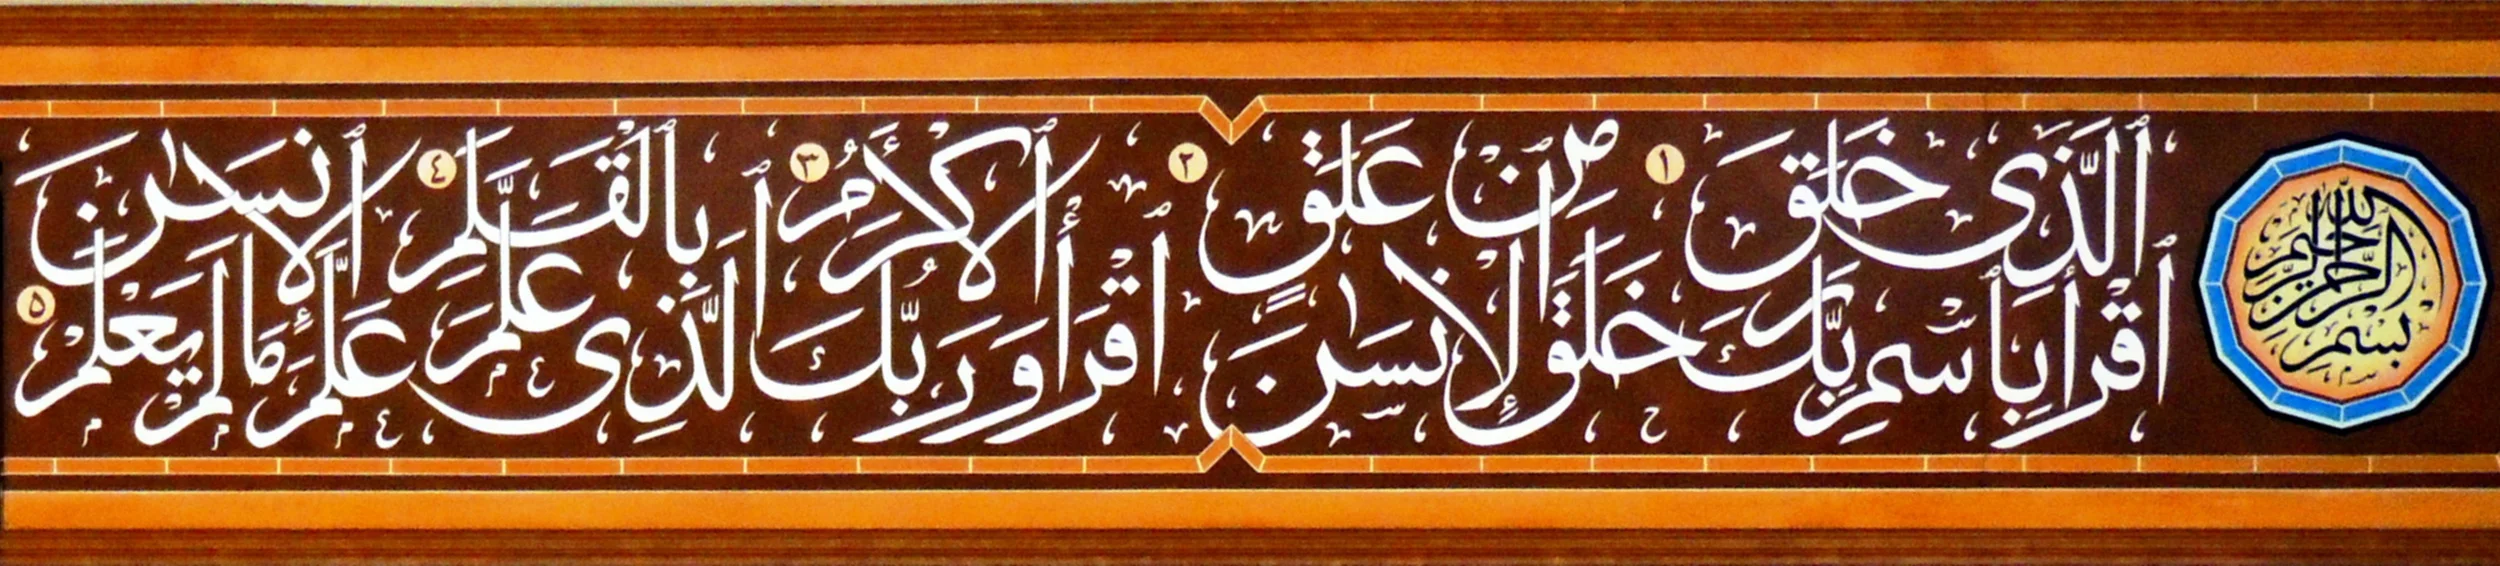 بسم الله الرحمن الرحيم
ٱقْرَأْ بِٱسْمِ رَبِّكَ ٱلَّذِى خَلَقَ ١ خَلَقَ ٱلْإِنسَٰنَ مِنْ عَلَقٍ ٢
ٱقْرَأْ وَرَبُّكَ ٱلْأَكْرَمُ ٣ ٱلَّذِى عَلَّمَ بِٱلْقَلَمِ ٤ عَلَّمَ ٱلْإِنسَٰنَ مَا لَمْ يَعْلَمْ ٥